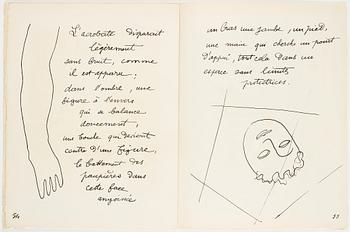 L'acrobate disparait
légèrement
sans bruit, comme
il est apparu;
dans l'ombre, une
figure à l'envers
qui se balance
doucement;
une boule qui devient
centre d'une figure,
le battement des
paupières dans
cette face
angoissée
54
un bras une jambe, un pied,
une main qui cherche un point
d'appui, tout cela dans un
espace sans limites
protectrices.
55